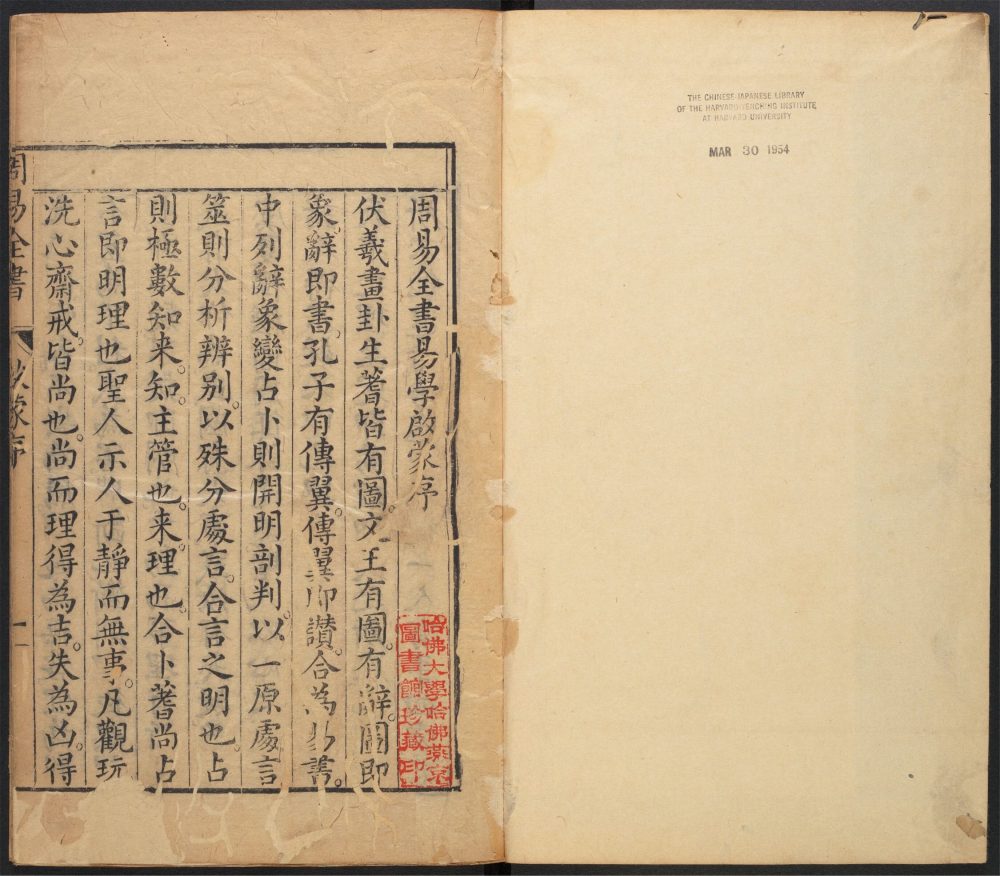 THE CHINESE-JAPANESE LIBRARY
OF THE HARVARD-YENCHING INSTITUTE
AT HARVARD UNIVERSITY
MAR 30 1954
周易全書易學啟蒙序
哈佛大學哈佛燕京
圖書館珍藏印
伏羲畫卦生蓍皆有圖。文王有圖。有辭。圖即
象。辭即書。孔子有傳翼。傳翼即讚。合為易書。
中列辭象變占卜則開明剖判。以一原處言
筮則分析辨别。以殊分處言。合言之明也。占
則極數知来。知。主管也。来。理也。合卜蓍尚占
言即明理也聖人示人于靜而無事。凡觀玩
洗心齋戒。皆尚也。尚而理得為吉。失為凶。得
周易全書
啟蒙序
一